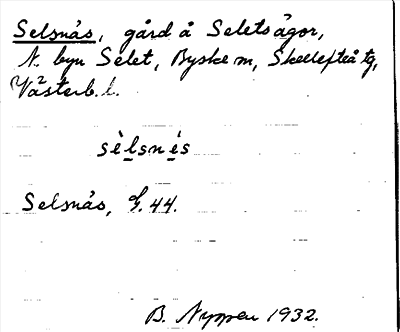 Selsnäs, gård å Seletsägor,
N. byn Selet, Byske sn, Skellefteå tg,
Västerb. l.
sèlsnés
Selsnäs, G. 44.
B. Nyppen 1932.